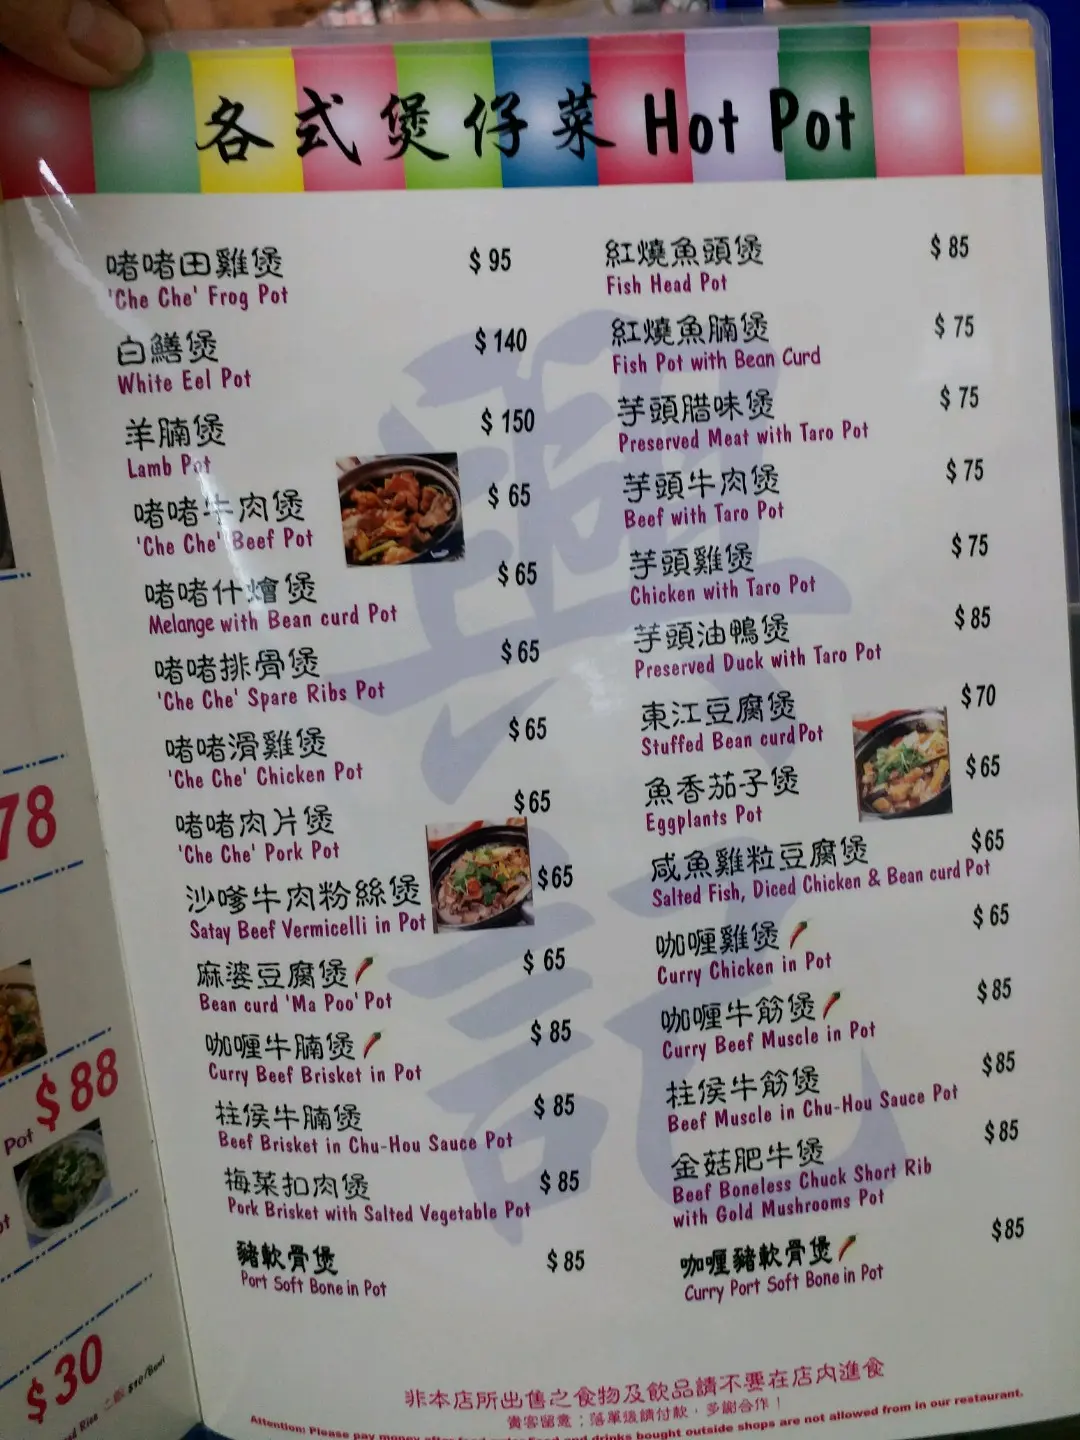 各式煲仔菜 Hot Pot
啫啫田雞煲 $ 95
'Che Che' Frog Pot
白鱔煲 $ 140
White Eel Pot
羊腩煲 $ 150
Lamb Pot
啫啫牛肉煲 $ 65
'Che Che' Beef Pot
啫啫什燴煲 $ 65
Melange with Bean curd Pot
啫啫排骨煲 $ 65
'Che Che' Spare Ribs Pot
啫啫滑雞煲 $ 65
'Che Che' Chicken Pot
啫啫肉片煲 $ 65
'Che Che' Pork Pot
沙嗲牛肉粉絲煲 $ 65
Satay Beef Vermicelli in Pot
麻婆豆腐煲 $ 65
Bean curd 'Ma Poo' Pot
咖喱牛腩煲 $ 85
Curry Beef Brisket in Pot
柱侯牛腩煲 $ 85
Beef Brisket in Chu-Hou Sauce Pot
梅菜扣肉煲 $ 85
Pork Brisket with Salted Vegetable Pot
豬軟骨煲 $ 85
Port Soft Bone in Pot
紅燒魚頭煲 $ 85
Fish Head Pot
紅燒魚腩煲 $ 75
Fish Pot with Bean Curd
芋頭腊味煲 $ 75
Preserved Meat with Taro Pot
芋頭牛肉煲 $ 75
Beef with Taro Pot
芋頭雞煲 $ 75
Chicken with Taro Pot
芋頭油鴨煲 $ 85
Preserved Duck with Taro Pot
東江豆腐煲 $ 70
Stuffed Bean curd Pot
魚香茄子煲 $ 65
Eggplants Pot
咸魚雞粒豆腐煲 $ 65
Salted Fish, Diced Chicken & Bean curd Pot
咖喱雞煲 $ 65
Curry Chicken in Pot
咖喱牛筋煲 $ 85
Curry Beef Muscle in Pot
柱侯牛筋煲 $ 85
Beef Muscle in Chu-Hou Sauce Pot
金菇肥牛煲 $ 85
Beef Boneless Chuck Short Rib
with Gold Mushrooms Pot
咖喱豬軟骨煲 $ 85
Curry Port Soft Bone in Pot
興記
非本店所出售之食物及飲品請不要在店內進食
貴客留意：落單後請付款，多謝合作！
Attention: Please pay money after food order. Food and drinks bought outside shops are not allowed from in our restaurant.
78
$ 88
Pot
$ 30
$10/Bowl